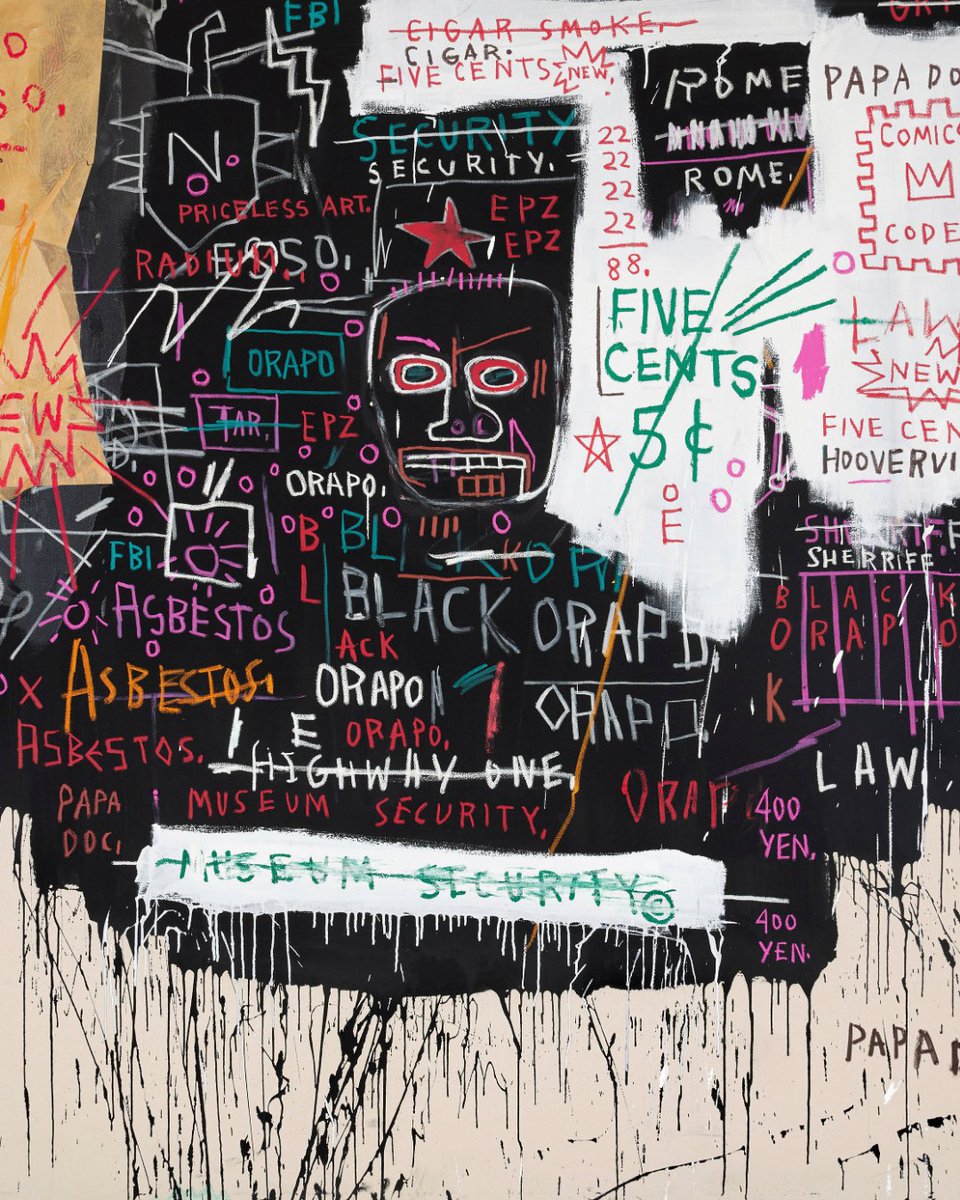 FBI
CIGAR SMOKE.
CIGAR.
FIVE CENTS
NEW.
ROME
PAPA DO
SO,
N
22
22
22
22
88.
SECURITY
SECURITY.
ROME.
COMIC
CODE
PRICELESS ART.
EPZ
EPZ
RADIUM.
ESSO.
FIVE
CENTS
5¢
LAW
NEW
ORAPO
TAR.
EPZ
ORAPO.
EW
FIVE CEN
HOOVERVI
FBI
B
L
ACK
BLACK ORAPO
BLACK ORAPO.
O
E
SHERRIFF.
SHERRIFF
BLACK
ORAPO
K
ASBESTOS
ASBESTOS.
X
ASBESTOS.
ORAPO
ORAPO.
ORAPO
E
HIGHWAY ONE.
LAW
PAPA
DOC.
MUSEUM SECURITY.
ORAP
400
YEN.
MUSEUM SECURITY©
400
YEN.
PAPA D